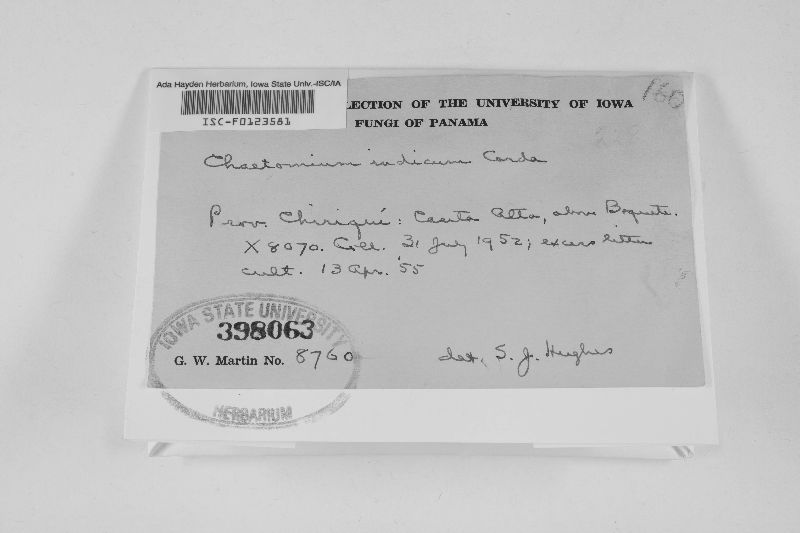 Ada Hayden Herbarium, Iowa State Univ.-ISC/IA
ISC-F0123581
LECTION OF THE UNIVERSITY OF IOWA
FUNGI OF PANAMA
160
Chaetomium indicum Corda
Prov. Chiriquí: Casita Alta, above Boquete.
X 8070. Coll. 31 July 1952; ex litter
cult. 13 Apr. '55
IOWA STATE UNIVERSITY
398063
G. W. Martin No. 8760
HERBARIUM
det. S. J. Hughes